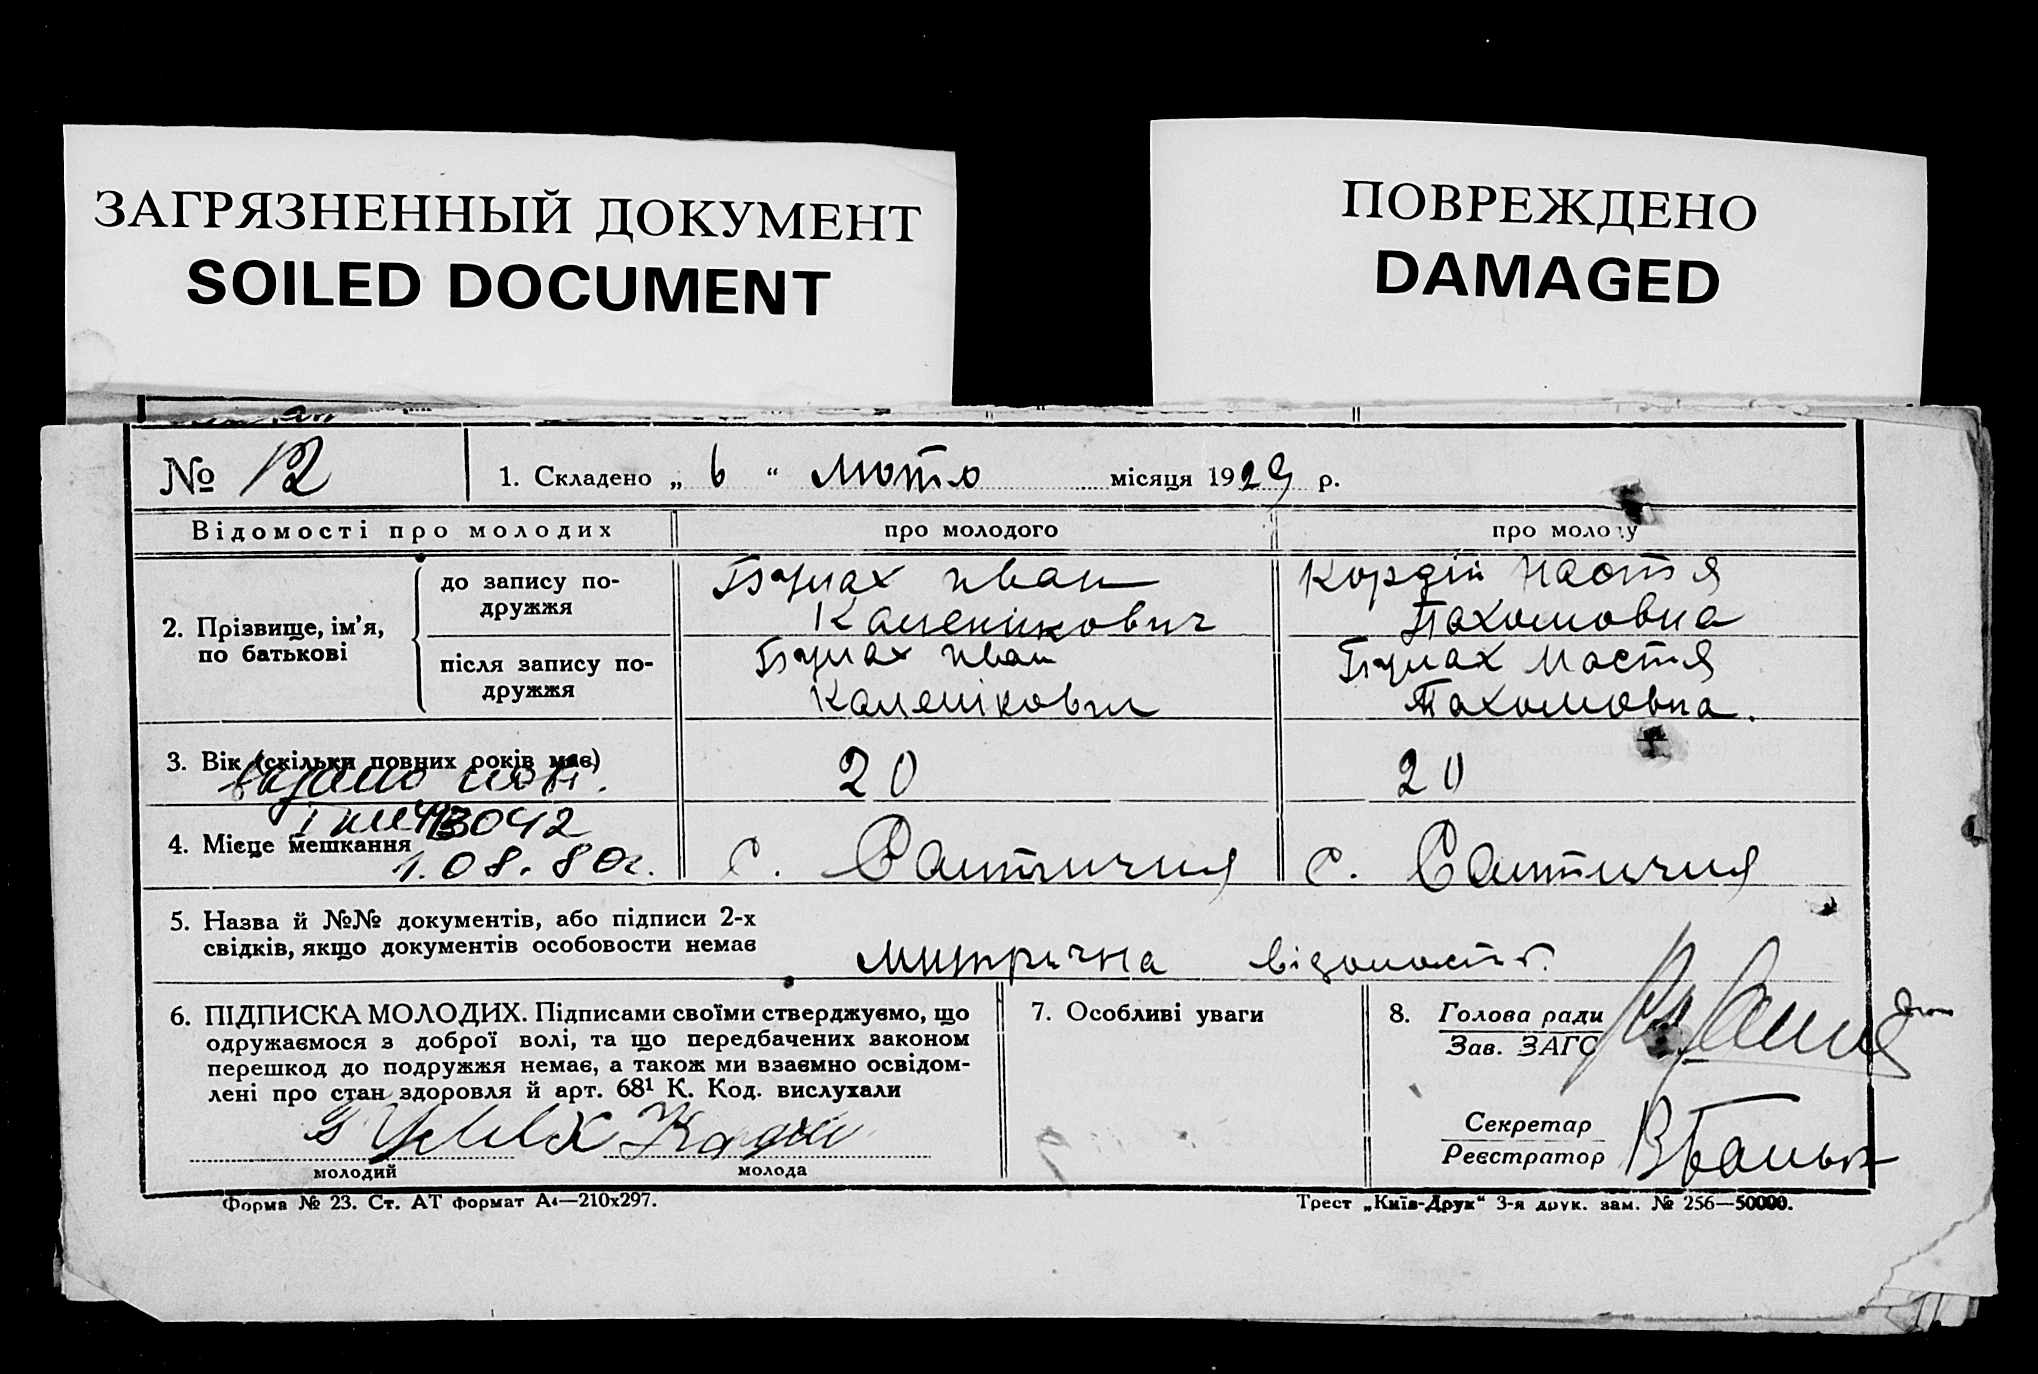 ЗАГРЯЗНЕННЫЙ ДОКУМЕНТ
SOILED DOCUMENT
ПОВРЕЖДЕНО
DAMAGED
№ 12
1. Складено „ 6 “ лютого місяця 1929 р.
Відомості про молодих
про молодого
про молоду
2. Прізвище, ім’я, по батькові
до запису по-
дружжя
Бурлах Иван
Каленікович
Кордій Настя
Пахомовна
після запису по-
дружжя
Бурлах Иван
Каленікович
Бурлах Настя
Пахомовна.
3. Вік (скільки повних років має)
20
20
видано повт.
4. Місце мешкання
3042
1.08.80г.
с.
с.
5. Назва й №№ документів, або підписи 2-х
свідків, якщо документів особовости немає
митрична відомость.
6. ПІДПИСКА МОЛОДИХ. Підписами своїми стверджуємо, що
одружаємося з доброї волі, та що передбачених законом
перешкод до подружжя немає, а також ми взаємно освідом-
лені про стан здоровля й арт. 68¹ К. Код. вислухали
молодий
молода
7. Особливі уваги
8. Голова ради
Зав. ЗАГС
Секретар
Реєстратор
Форма № 23. Ст. АТ формат А₄—210х297.
Трест „Київ-Друк“ 3-я друк. зам. № 256—50000.